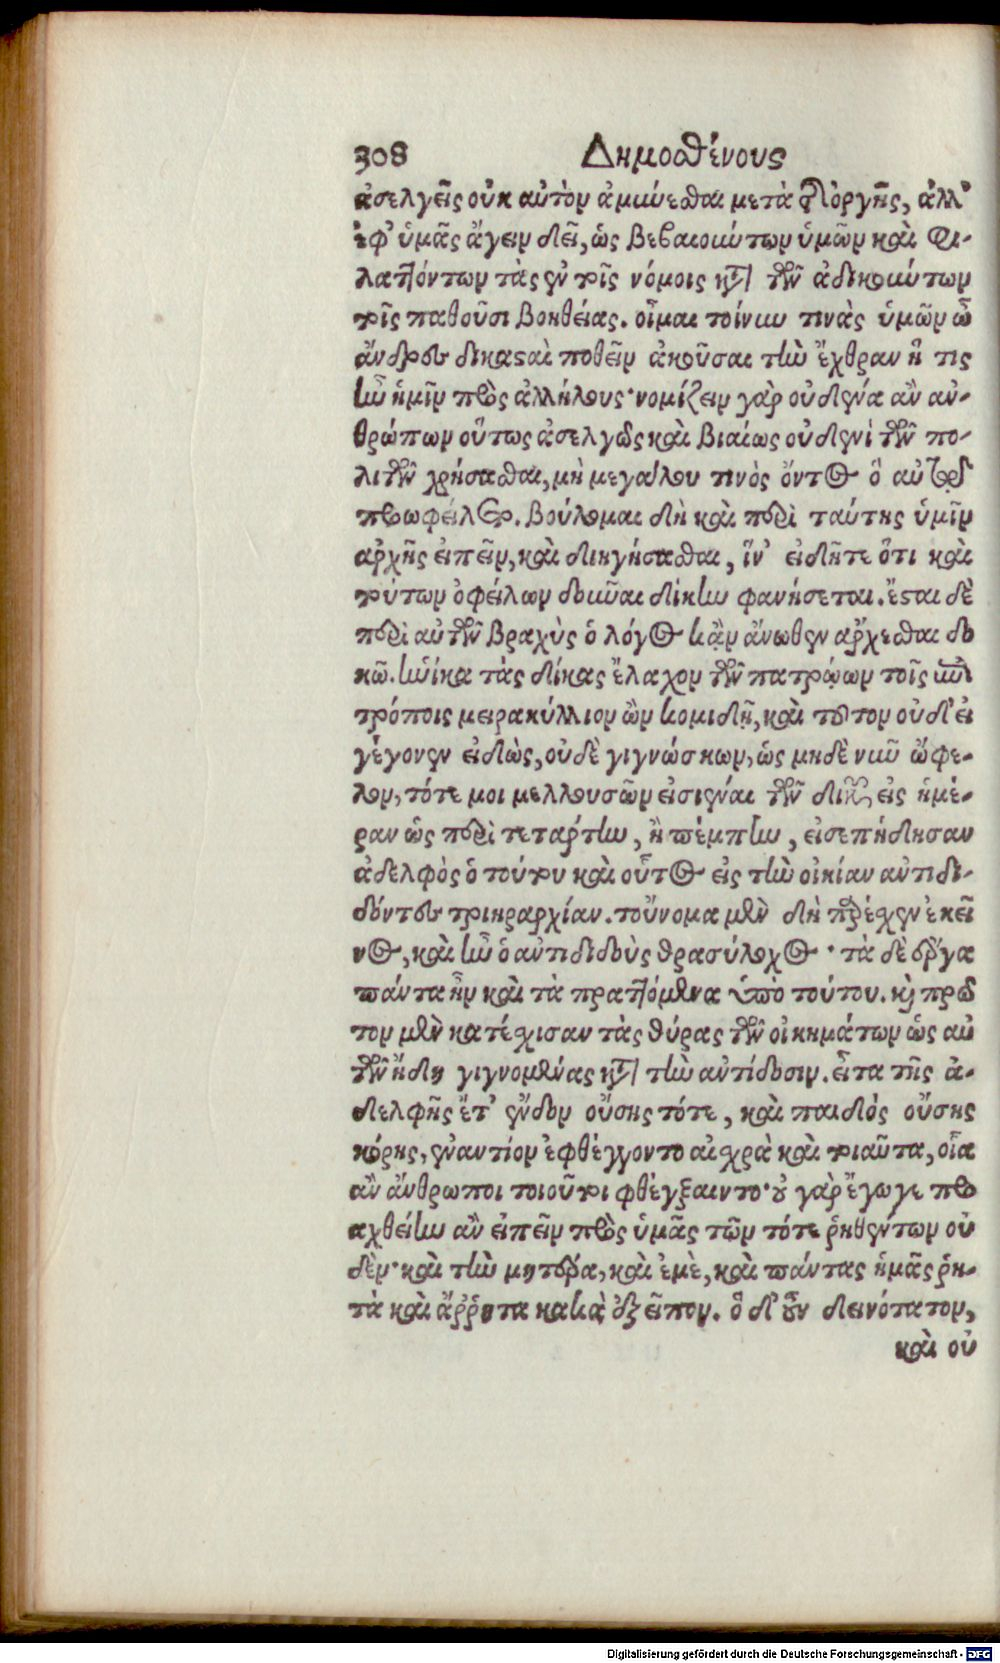 308 Δημοσθένους
ἀσελγεῖς οὐκ αὐτὸν ἀμύνεσθαι μετὰ τῆς ὀργῆς, ἀλλ'
ἐφ' ὑμᾶς ἄγειν δεῖ, ὡς βεβαιούντων ὑμῶν καὶ φυ-
λαττόντων τὰς ἐν τοῖς νόμοις κατὰ τῶν ἀδικούντων
τοῖς παθοῦσι βοηθείας. οἶμαι τοίνυν τινὰς ὑμῶν ὦ
ἄνδρες δικασταὶ ποθεῖν ἀκοῦσαι τὴν ἔχθραν ἥ τις
ἦν ἡμῖν πρὸς ἀλλήλους· νομίζειν γὰρ οὐδένα ἂν ἀν-
θρώπων οὕτως ἀσελγῶς καὶ βιαίως οὐδενὶ τῶν πο-
λιτῶν χρήσασθαι, μὴ μεγάλου τινὸς ὄντος ὃ αὐτῷ
προωφείλετο. βούλομαι δὴ καὶ περὶ ταύτης ὑμῖν
ἀρχῆς εἰπεῖν, καὶ διηγήσασθαι, ἵν' εἰδῆτε ὅτι καὶ
τούτων ὀφείλων δοῦναι δίκην φανήσεται. ἔσται δὲ
περὶ αὐτῶν βραχὺς ὁ λόγος κἂν ἄνωθεν ἄρχεσθαι δο
κῶ. ἡνίκα τὰς δίκας ἔλαχον τῶν πατρῴων τοῖς ἐπι
τρόποις μειρακύλλιον ὢν κομιδῇ, καὶ τοῦτον οὐδ' εἰ
γέγονεν εἰδὼς, οὐδὲ γιγνώσκων, ὡς μηδὲ νῦν ὤφε-
λον, τότε μοι μελλουσῶν εἰσιέναι τῶν δικῶν εἰς ἡμέ-
ραν ὡς περὶ τετάρτην, ἢ πέμπτην, εἰσεπήδησαν
ἀδελφὸς ὁ τούτου καὶ οὗτος εἰς τὴν οἰκίαν ἀντιδι-
δόντες τριηραρχίαν. τοὔνομα μὲν δὴ παρέσχεν ἐκεῖ
νος, καὶ ἦν ὁ ἀντιδιδοὺς Θρασύλοχος· τὰ δὲ ἔργα
πάντα ἦν καὶ τὰ πραττόμενα ὑπὸ τούτου. καὶ πρῶ
τον μὲν κατέσχισαν τὰς θύρας τῶν οἰκημάτων ὡς αὐ
τῶν ἤδη γιγνομένας κατὰ τὴν ἀντίδοσιν. εἶτα τῆς ἀ-
δελφῆς ἔτ' ἔνδον οὔσης τότε, καὶ παιδὸς οὔσης
κόρης, ἐναντίον ἐφθέγγοντο αἰσχρὰ καὶ τοιαῦτα, οἷα
ἂν ἄνθρωποι τοιοῦτοι φθέγξαιντο· οὐ γὰρ ἔγωγε προ
αχθείην ἂν εἰπεῖν πρὸς ὑμᾶς τῶν τότε ῥηθέντων οὐ
δέν· καὶ τὴν μητέρα, καὶ ἐμὲ, καὶ πάντας ἡμᾶς ῥη-
τὰ καὶ ἄῤῥητα κακὰ ἐξεῖπον. ὃ δ' οὖν δεινότατον,
καὶ οὐ
Digitalisierung gefördert durch die Deutsche Forschungsgemeinschaft - DFG